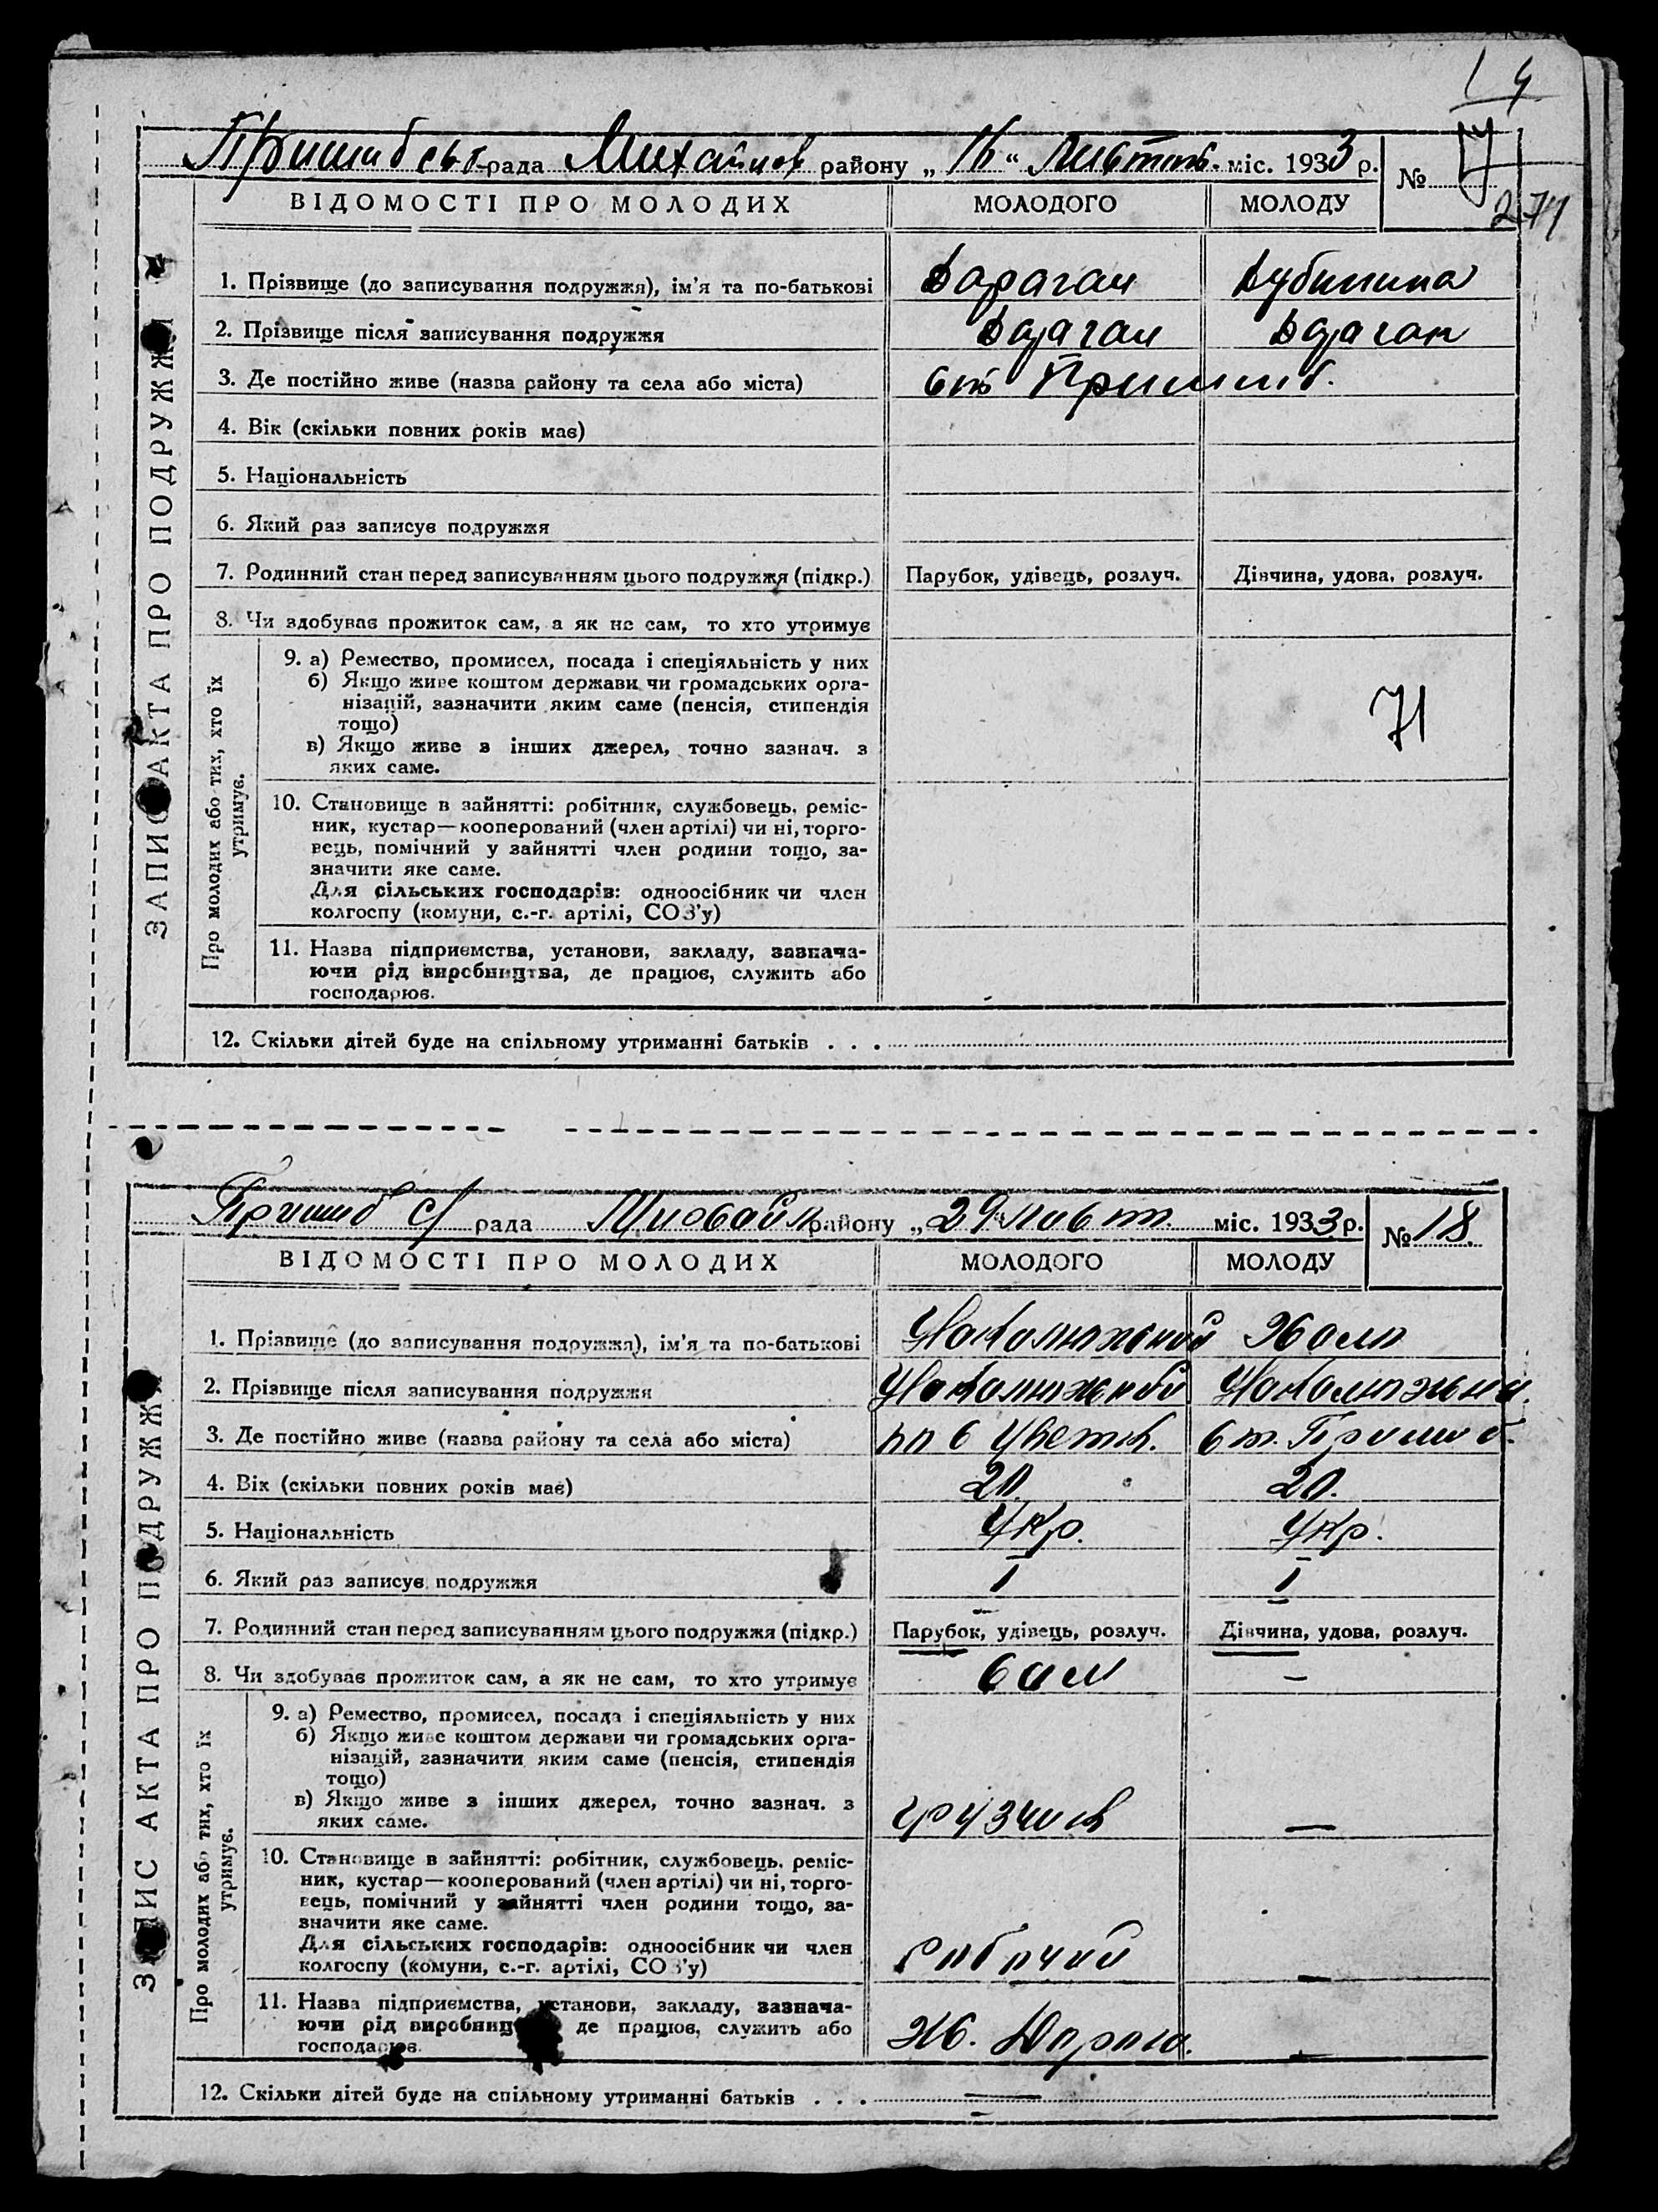 14
Пришибсьб рада Михайлов району „ 16 “ Листоп. міс. 1933 р.
№ 17
274
ВІДОМОСТІ ПРО МОЛОДИХ МОЛОДОГО МОЛОДУ
1. Прізвище (до записування подружжя), ім'я та по-батькові Барагам Дубинина
2. Прізвище після записування подружжя
3. Де постійно живе (назва району та села або міста) ст Пришиб.
4. Вік (скільки повних років має)
5. Національність
6. Який раз записує подружжя
7. Родинний стан перед записуванням цього подружжя (підкр.) Парубок, удівець, розлуч. Дівчина, удова, розлуч.
8. Чи здобуває прожиток сам, а як не сам, то хто утримує
9. а) Ремество, промисел, посада і спеціяльність у них
б) Якщо живе коштом держави чи громадських орга-
нізацій, зазначити яким саме (пенсія, стипендія
тощо)
в) Якщо живе з інших джерел, точно зазнач. з
яких саме.
71
10. Становище в зайнятті: робітник, службовець, реміс-
ник, кустар—кооперований (член артілі) чи ні, торго-
вець, помічний у зайнятті член родини тощо, за-
значити яке саме.
Для сільських господарів: одноосібник чи член
колгоспу (комуни, с.-г. артілі, СОЗ'у)
11. Назва підприємства, установи, закладу, зазнача-
ючи рід виробництва, де працює, служить або
господарює.
12. Скільки дітей буде на спільному утриманні батьків . . .
Про молодих або тих, хто їх
утримує.
ЗАПИС АКТА ПРО ПОДРУЖЖЯ
Пришиб с/ рада району „ 29 “ міс. 1933 р.
№ 18.
ВІДОМОСТІ ПРО МОЛОДИХ МОЛОДОГО МОЛОДУ
1. Прізвище (до записування подружжя), ім'я та по-батькові
2. Прізвище після записування подружжя
3. Де постійно живе (назва району та села або міста) ст. Пришиб.
4. Вік (скільки повних років має) 20. 20.
5. Національність Укр. Укр.
6. Який раз записує подружжя I I
7. Родинний стан перед записуванням цього подружжя (підкр.) Парубок, удівець, розлуч. Дівчина, удова, розлуч.
8. Чи здобуває прожиток сам, а як не сам, то хто утримує сам —
9. а) Ремество, промисел, посада і спеціяльність у них
б) Якщо живе коштом держави чи громадських орга-
нізацій, зазначити яким саме (пенсія, стипендія
тощо)
в) Якщо живе з інших джерел, точно зазнач. з
яких саме. грузчик —
10. Становище в зайнятті: робітник, службовець, реміс-
ник, кустар—кооперований (член артілі) чи ні, торго-
вець, помічний у зайнятті член родини тощо, за-
значити яке саме.
Для сільських господарів: одноосібник чи член
колгоспу (комуни, с.-г. артілі, СОЗ'у) рабочий —
11. Назва підприємства, установи, закладу, зазнача-
ючи рід виробництва, де працює, служить або
господарює. Жб. Дорога. —
12. Скільки дітей буде на спільному утриманні батьків . . . —
Про молодих або тих, хто їх
утримує.
ЗАПИС АКТА ПРО ПОДРУЖЖЯ